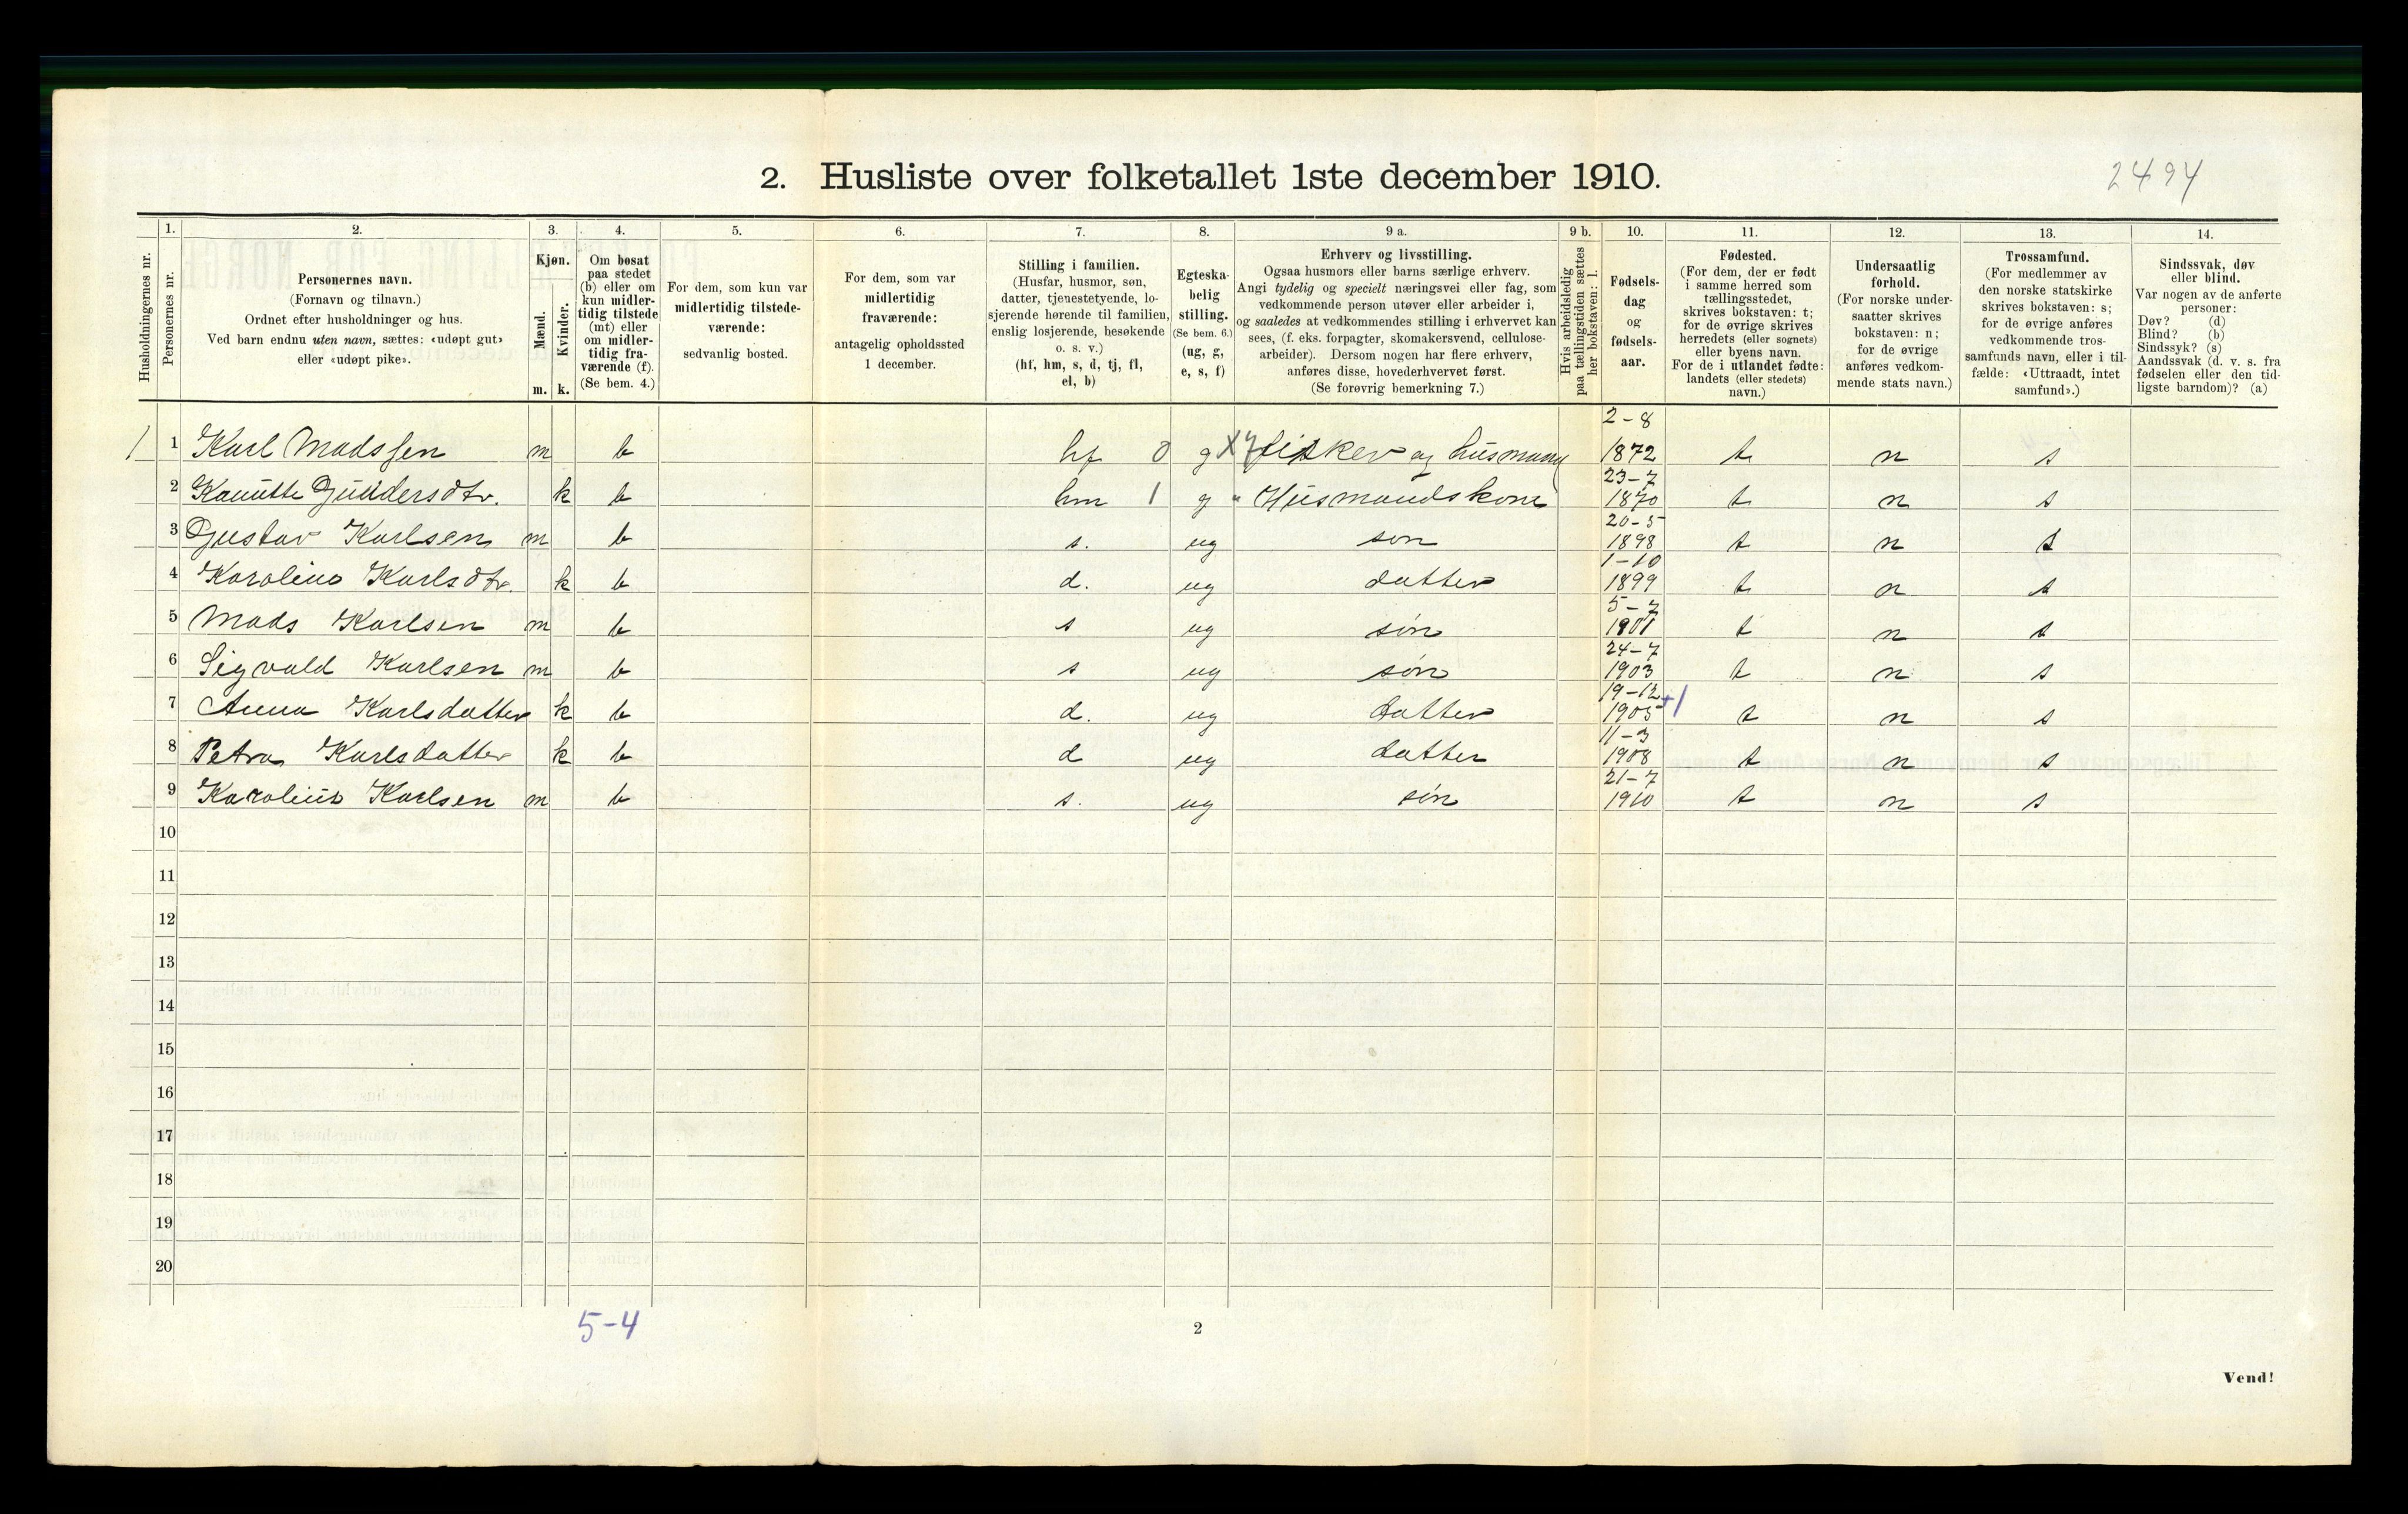 2. Husliste over folketallet 1ste december 1910.
2494
Husholdningernes nr.
1.
Personernes nr.
2.
Personernes navn.
(Fornavn og tilnavn.)
Ordnet efter husholdninger og hus.
Ved barn endnu uten navn, sættes: «udøpt gut»
eller «udøpt pike».
3.
Kjøn.
Mænd.
Kvinder.
m. k.
4.
Om bosat
paa stedet
(b) eller om
kun midler-
tidig tilstede
(mt) eller
om midler-
tidig fra-
værende (f).
(Se bem. 4.)
5.
For dem, som kun var
midlertidig tilstede-
værende:
sedvanlig bosted.
6.
For dem, som var
midlertidig
fraværende:
antagelig opholdssted
1 december.
7.
Stilling i familien.
(Husfar, husmor, søn,
datter, tjenestetyende, lo-
sjerende hørende til familien,
enslig losjerende, besøkende
o. s. v.)
(hf, hm, s, d, tj, fl,
el, b)
8.
Egteska-
belig
stilling.
(Se bem. 6.)
(ug, g,
e, s, f)
9 a.
Erhverv og livsstilling.
Ogsaa husmors eller barns særlige erhverv.
Angi tydelig og specielt næringsvei eller fag, som
vedkommende person utøver eller arbeider i,
og saaledes at vedkommendes stilling i erhvervet kan
sees, (f. eks. forpagter, skomakersvend, cellulose-
arbeider). Dersom nogen har flere erhverv,
anføres disse, hovederhvervet først.
(Se forøvrig bemerkning 7.)
9 b.
Hvis arbeidsledig
paa tællingstiden sættes
her bokstaven: l.
10.
Fødsels-
dag
og
fødsels-
aar.
11.
Fødested.
(For dem, der er født
i samme herred som
tællingsstedet,
skrives bokstaven: t;
for de øvrige skrives
herredets (eller sognets)
eller byens navn.
For de i utlandet fødte:
landets (eller stedets)
navn.)
12.
Undersaatlig
forhold.
(For norske under-
saatter skrives
bokstaven: n;
for de øvrige
anføres vedkom-
mende stats navn.)
13.
Trossamfund.
(For medlemmer av
den norske statskirke
skrives bokstaven: s;
for de øvrige anføres
vedkommende tros-
samfunds navn, eller i til-
fælde: «Uttraadt, intet
samfund».)
14.
Sindssvak, døv
eller blind.
Var nogen av de anførte
personer:
Døv? (d)
Blind? (b)
Sindssyk? (s)
Aandssvak (d. v. s. fra
fødselen eller den tid-
ligste barndom)? (a)
1 1 Karl Madssen m b hf 0 g X7 fisker og husmand 2-8 1872 t n s
2 Kanutte Gundersdtr. k b hm 1 g " Husmandskone 23-7 1870 t n s
3 Gustav Karlsen m b s. ug søn 20-5 1898 t n s
4 Karoline Karlsdtr. k b d. ug datter 1-10 1899 t n s
5 Mads Karlsen m b s ug søn 5-7 1901 t n s
6 Sigvald Karlsen m b s ug søn 24-7 1903 t n s
7 Anna Karlsdatter k b d. ug datter 19-12 1905 +1 t n s
8 Petra Karlsdatter k b d ug datter 11-3 1908 t n s
9 Karolius Karlsen m b s. ug søn 21-7 1910 t n s
10
11
12
13
14
15
16
17
18
19
20
5-4
2
Vend!